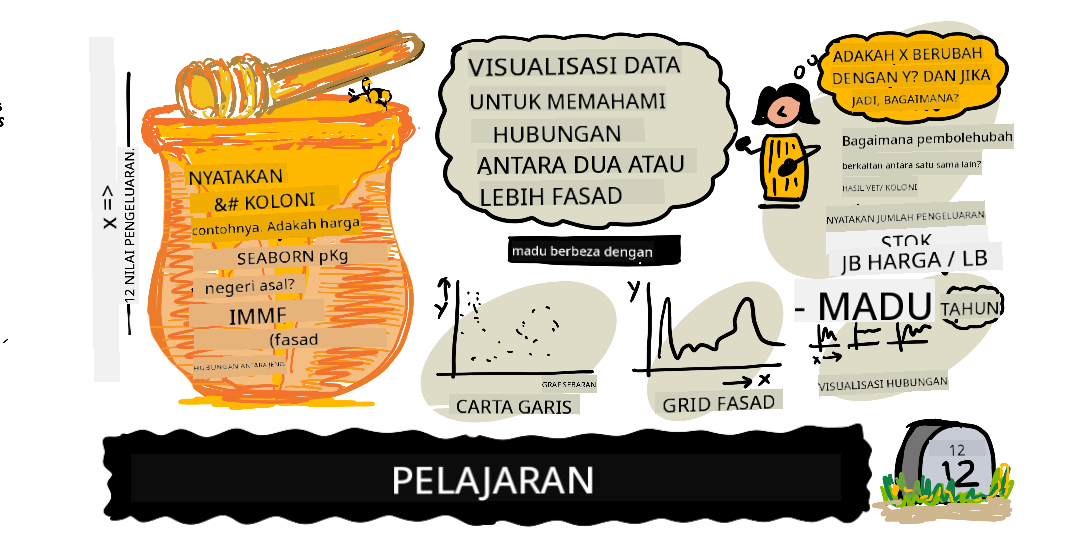 X =>
12 NILAI PENGELUARAN.
NYATAKAN
&# KOLONI
contohnya. Adakah harga
SEABORN pKg
negeri asal?
IMMF
(fasad
HUBUNGAN ANTARA JENIS
VISUALISASI DATA
UNTUK MEMAHAMI
HUBUNGAN
ANTARA DUA ATAU
LEBIH FASAD
madu berbeza dengan
Y
GRAF SEBARAN
CARTA GARIS
Y
X
GRID FASAD
ADAKAH X BERUBAH
DENGAN Y? DAN JIKA
JADI, BAGAIMANA?
Bagaimana pembolehubah
berkaitan antara satu sama lain?
HASIL VET/ KOLONI
NYATAKAN JUMLAH PENGELUARAN
STOK
JB HARGA / LB
- MADU
TAHUN
X
VISUALISASI HUBUNGAN
PELAJARAN
12
12